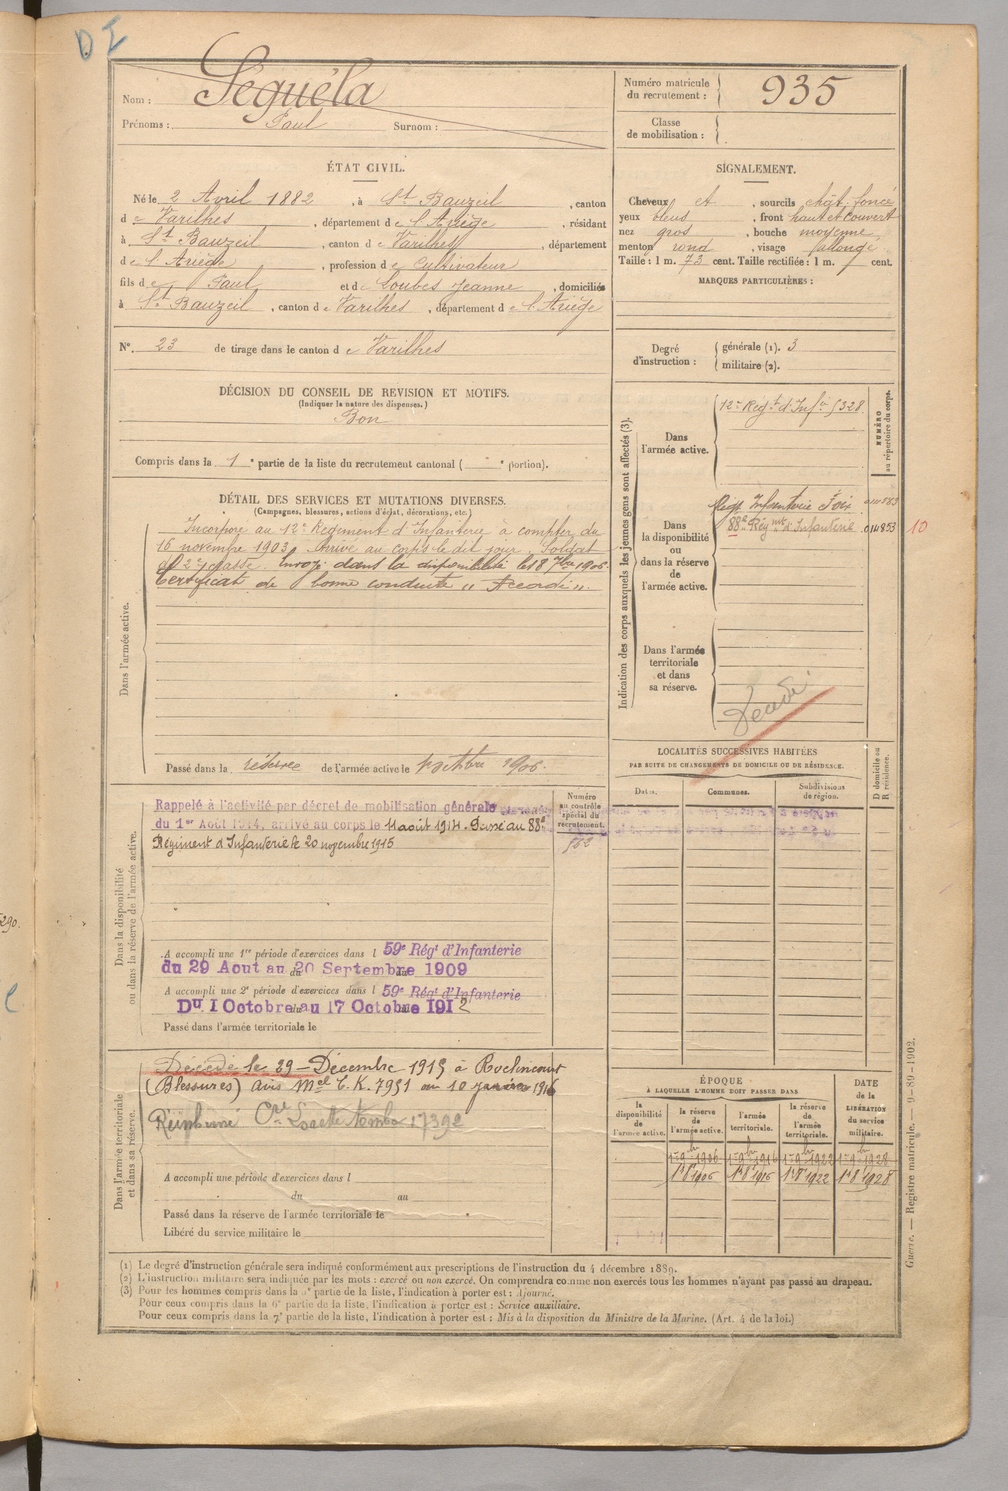 D I
Nom : Séguéla
Prénoms : Paul Surnom :
Numéro matricule du recrutement : 935
Classe de mobilisation :
ÉTAT CIVIL.
Né le 2 Avril 1882, à St Bauzeil, canton
d e Varilhes, département d e l'Ariège, résidant
à St Bauzeil, canton d e Varilhes, département
d e l'Ariège, profession d e Cultivateur
fils d e Paul et d e Loubes Jeanne, domiciliés
à St Bauzeil, canton d e Varilhes, département d e l'Ariège
N°. 23 de tirage dans le canton d e Varilhes
SIGNALEMENT.
Cheveux et, sourcils chât. foncé
yeux bleus, front haut et couvert
nez gros, bouche moyenne,
menton rond, visage allongé.
Taille : 1 m. 73 cent. Taille rectifiée : 1 m. cent.
MARQUES PARTICULIÈRES :
Degré d'instruction : générale (1). 3
militaire (2).
DÉCISION DU CONSEIL DE REVISION ET MOTIFS.
(Indiquer la nature des dispenses.)
Bon
Compris dans la 1e partie de la liste du recrutement cantonal ( e portion).
DÉTAIL DES SERVICES ET MUTATIONS DIVERSES.
(Campagnes, blessures, actions d'éclat, décorations, etc.)
Dans l'armée active.
Incorporé au 12e Régiment d'Infanterie à compter du
16 novembre 1903, Arrivé au corps le dit jour, Soldat
de 2e classe. Envoyé dans la disponibilité le 18 7bre 1906.
Certificat de bonne conduite "Accordé".
Passé dans la réserve de l'armée active le 1 octobre 1906.
Indication des corps auxquels les jeunes gens sont affectés (3).
NUMÉRO au répertoire du corps.
Dans l'armée active.
12e Régt d'Infie 5328
Dans la disponibilité ou dans la réserve de l'armée active.
Régt Infanterie Foix
88e Régiment d'Infanterie 014853 10
Dans l'armée territoriale et dans sa réserve.
Décédé
LOCALITÉS SUCCESSIVES HABITÉES
PAR SUITE DE CHANGEMENTS DE DOMICILE OU DE RÉSIDENCE.
Dates. Communes. Subdivisions de région. D domicile ou R résidence.
Dans la disponibilité ou dans la réserve de l'armée active.
Numéro au contrôle spécial du recrutement.
563
Rappelé à l'activité par décret de mobilisation générale
du 1er Août 1914, arrivé au corps le 4 août 1914. Passé au 88e
Régiment d'Infanterie le 20 novembre 1915
A accompli une 1re période d'exercices dans l 59e Régt d'Infanterie
du 29 Aout au 20 Septembre 1909
A accompli une 2e période d'exercices dans l 59e Régt d'Infanterie
Du 1 Octobre au 17 Octobre 1912
Passé dans l'armée territoriale le
Dans l'armée territoriale et dans sa réserve.
Décédé le 29 Décembre 1915 à Roclincourt
(Blessures) avis Mel C.K. 7951 du 10 janvier 1916
Réinhumé Cre Lorette Tombe 17392
A accompli une période d'exercices dans l
du au
Passé dans la réserve de l'armée territoriale le
Libéré du service militaire le
ÉPOQUE
À LAQUELLE L'HOMME DOIT PASSER DANS
DATE DE LA LIBÉRATION du service militaire.
la disponibilité de l'armée active. la réserve de l'armée active. l'armée territoriale. la réserve de l'armée territoriale.
1 9bre 1906 1 9bre 1916 1 9bre 1922 1 9bre 1928
1r 8e 1906 1r 8e 1916 1r 8e 1922 1r 8e 1928
(1) Le degré d'instruction générale sera indiqué conformément aux prescriptions de l'instruction du 4 décembre 1889.
(2) L'instruction militaire sera indiquée par les mots : exercé ou non exercé. On comprendra comme non exercés tous les hommes n'ayant pas passé au drapeau.
(3) Pour les hommes compris dans la 5e partie de la liste, l'indication à porter est : Ajourné.
Pour ceux compris dans la 6e partie de la liste, l'indication à porter est : Service auxiliaire.
Pour ceux compris dans la 7e partie de la liste, l'indication à porter est : Mis à la disposition du Ministre de la Marine. (Art. 4 de la loi.)
Guerre. — Registre matricule. — 9-89-1902.
290.